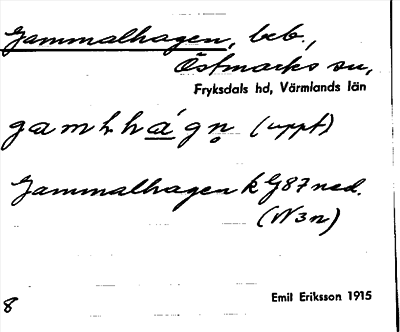 Gammalhagen, beb.,
Östmarks sn,
Fryksdals hd, Värmlands län
gamhhágn̥ (uppt)
Gammalhagen k G87 ned.
(N3n)
8
Emil Eriksson 1915